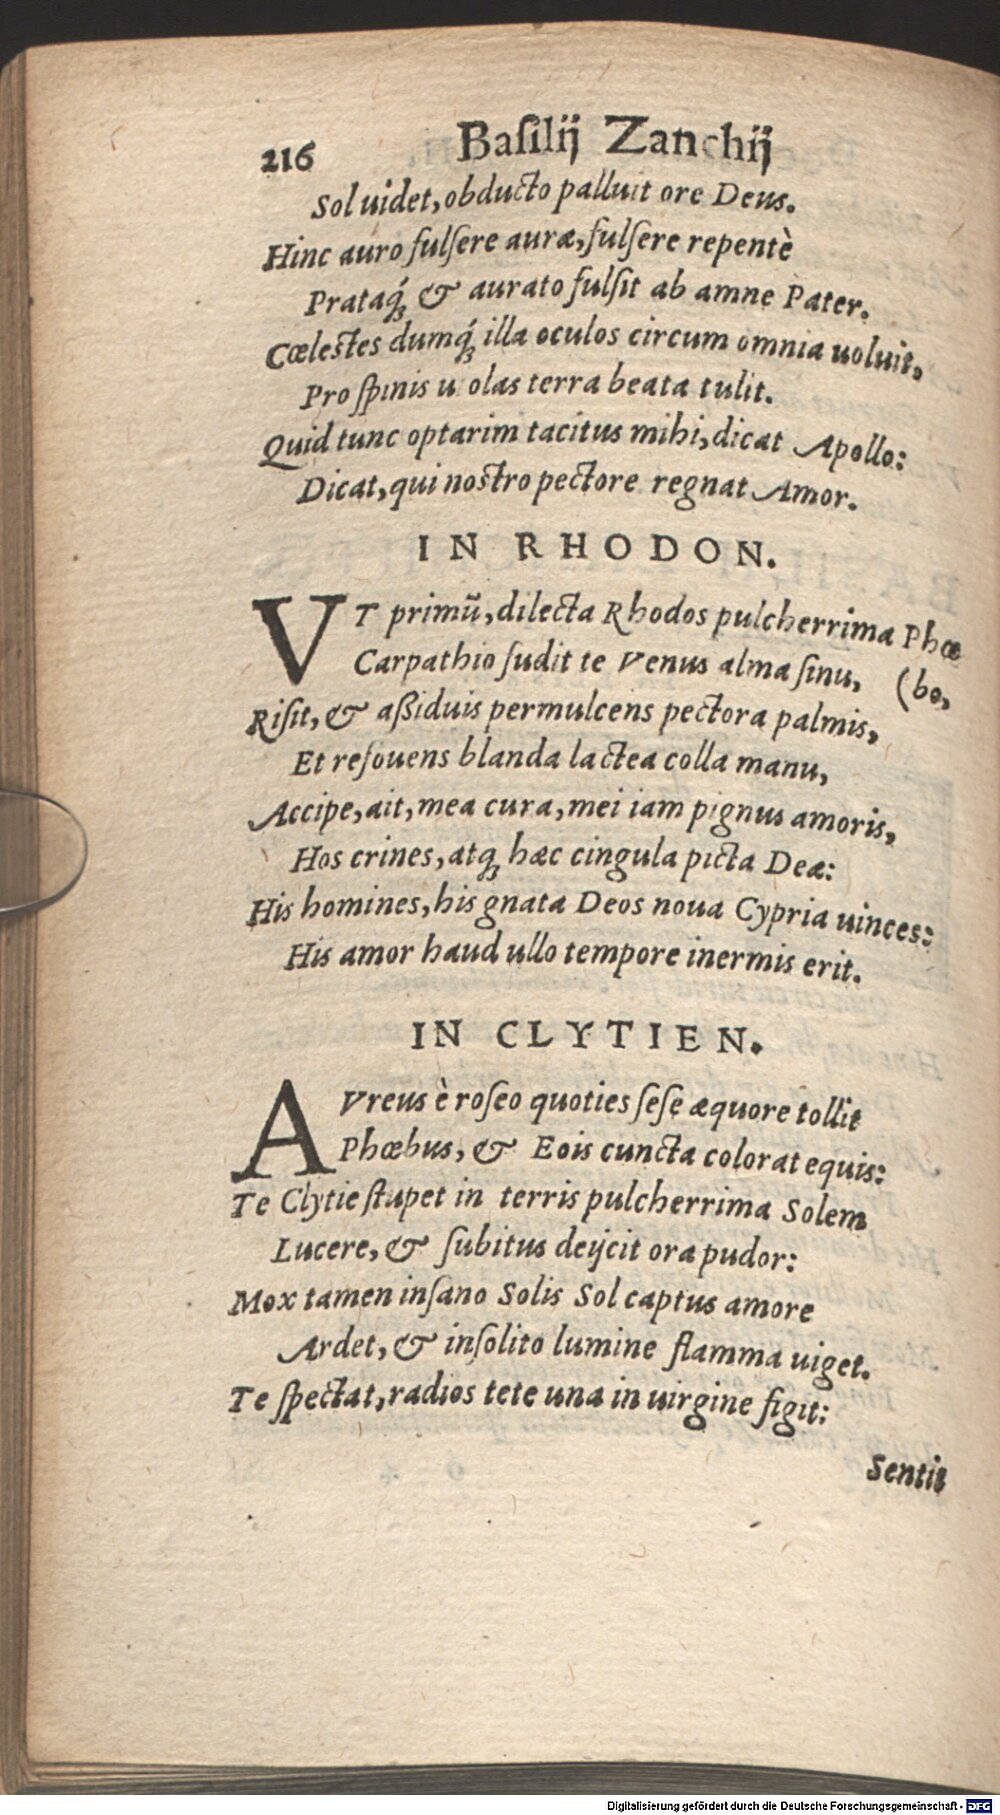 216 Baſilij Zanchij
Sol uidet, obducto palluit ore Deus.
Hinc auro fulſere auræ, fulſere repentè
Prataq́ꝫ & aurato fulſit ab amne Pater.
Cœleſtes dumq́ꝫ illa oculos circum omnia uoluit,
Pro ſpinis u olas terra beata tulit.
Quid tunc optarim tacitus mihi, dicat Apollo:
Dicat, qui noſtro pectore regnat Amor.
IN RHODON.
VT primũ, dilecta Rhodos pulcherrima Phœ
Carpathio fudit te Venus alma ſinu, (be,
Riſit, & aßiduis permulcens pectora palmis,
Et refouens blanda lactea colla manu,
Accipe, ait, mea cura, mei iam pignus amoris,
Hos crines, atqꝫ hæc cingula picta Deæ:
His homines, his gnata Deos noua Cypria uinces:
His amor haud ullo tempore inermis erit.
IN CLYTIEN.
AVreus è roſeo quoties ſeſe æquore tollit
Phœbus, & Eois cuncta colorat equis:
Te Clytie ſtupet in terris pulcherrima Solem
Lucere, & ſubitus deijcit ora pudor:
Mox tamen inſano Solis Sol captus amore
Ardet, & inſolito lumine flamma uiget.
Te ſpectat, radios tete una in uirgine figit:
Sentit
Digitalisierung gefördert durch die Deutsche Forschungsgemeinschaft - DFG